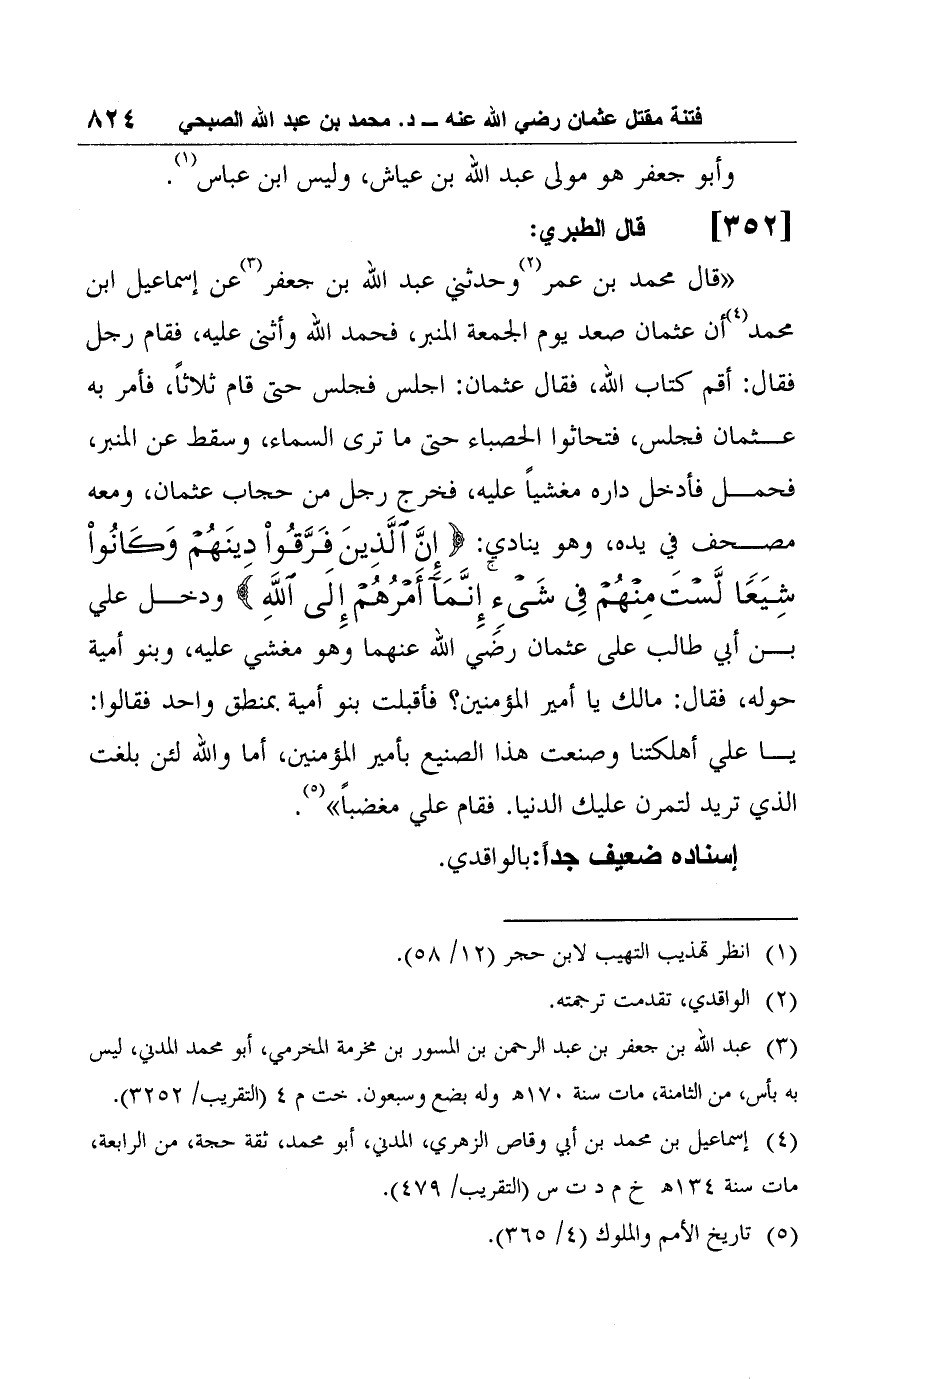 فتنة مقتل عثمان رضي الله عنه ــ د. محمد بن عبد الله الصبحي ٨٢٤
وأبو جعفر هو مولى عبد الله بن عياش، وليس ابن عباس(١).
[٣٥٢] قال الطبري:
«قال محمد بن عمر(٢)وحدثني عبد الله بن جعفر(٣)عن إسماعيل ابن
محمد(٤)أن عثمان صعد يوم الجمعة المنبر، فحمد الله وأثنى عليه، فقام رجل
فقال: أقم كتاب الله، فقال عثمان: اجلس فجلس حتى قام ثلاثاً، فأمر به
عـثمان فجلس، فتحاثوا الحصباء حتى ما ترى السماء، وسقط عن المنبر،
فحمـل فأدخل داره مغشياً عليه، فخرج رجل من حجاب عثمان، ومعه
مصـحف في يده، وهو ينادي: ﴿ إِنَّ ٱلَّذِينَ فَرَّقُواْ دِينَهُمْ وَكَانُواْ
شِيَعًا لَّسْتَ مِنْهُمْ فِى شَىْءٍ ۚ إِنَّمَآ أَمْرُهُمْ إِلَى ٱللَّهِ ﴾ ودخـل علي
بـن أبي طالب على عثمان رضي الله عنهما وهو مغشي عليه، وبنو أمية
حوله، فقال: مالك يا أمير المؤمنين؟ فأقبلت بنو أمية بمنطق واحد فقالوا:
يـا علي أهلكتنا وصنعت هذا الصنيع بأمير المؤمنين، أما والله لئن بلغت
الذي تريد لتمرن عليك الدنيا. فقام علي مغضباً»(٥).
إسناده ضعيف جداً: بالواقدي.
(١) انظر تهذيب التهيب لابن حجر (١٢/ ٥٨).
(٢) الواقدي، تقدمت ترجمته.
(٣) عبد الله بن جعفر بن عبد الرحمن بن المسور بن مخرمة المخرمي، أبو محمد المدني، ليس
به بأس، من الثامنة، مات سنة ١٧٠هـ وله بضع وسبعون. خت م ٤ (التقريب/ ٣٢٥٢).
(٤) إسماعيل بن محمد بن أبي وقاص الزهري، المدني، أبو محمد، ثقة حجة، من الرابعة،
مات سنة ١٣٤هـ خ م د ت س (التقريب/ ٤٧٩).
(٥) تاريخ الأمم والملوك (٤/ ٣٦٥).